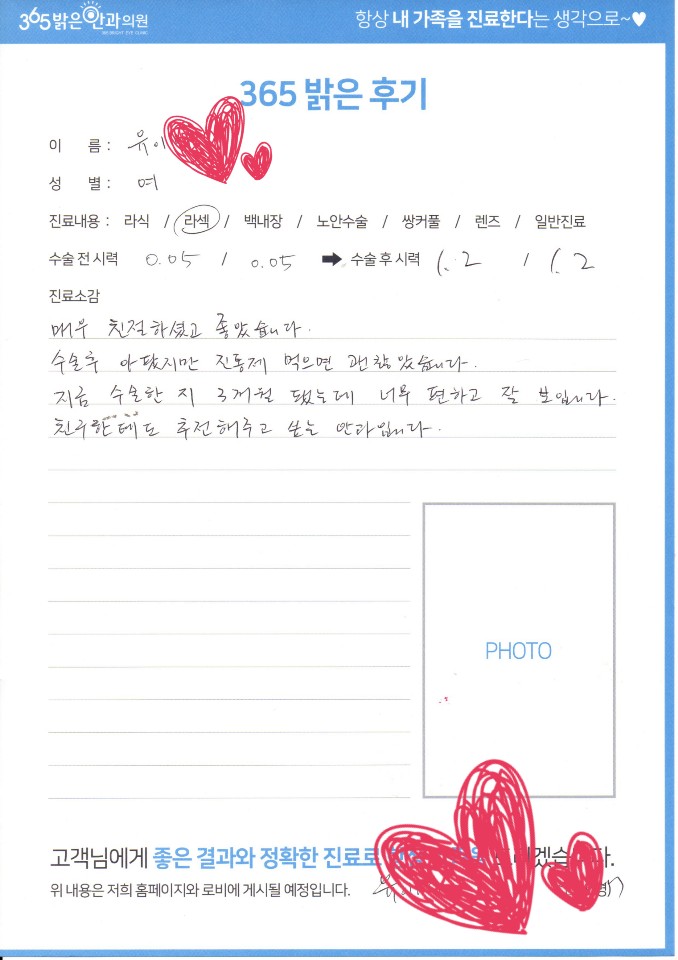 365밝은안과의원
항상 내 가족을 진료한다는 생각으로~♥
365 밝은 후기
이 름 : 유이
성 별 : 여
진료내용 : 라식 / 라섹 / 백내장 / 노안수술 / 쌍커풀 / 렌즈 / 일반진료
수술 전 시력 0.05 / 0.05 ➡ 수술 후 시력 1.2 / 1.2
진료소감
매우 친절하셨고 좋았습니다.
수술후 아팠지만 진통제 먹으면 괜찮았습니다.
지금 수술한 지 3개월 됐는데 너무 편하고 잘 보입니다.
친구한테도 추천해주고 싶은 안과입니다.
PHOTO
고객님에게 좋은 결과와 정확한 진료로
위 내용은 저희 홈페이지와 로비에 게시될 예정입니다. 유